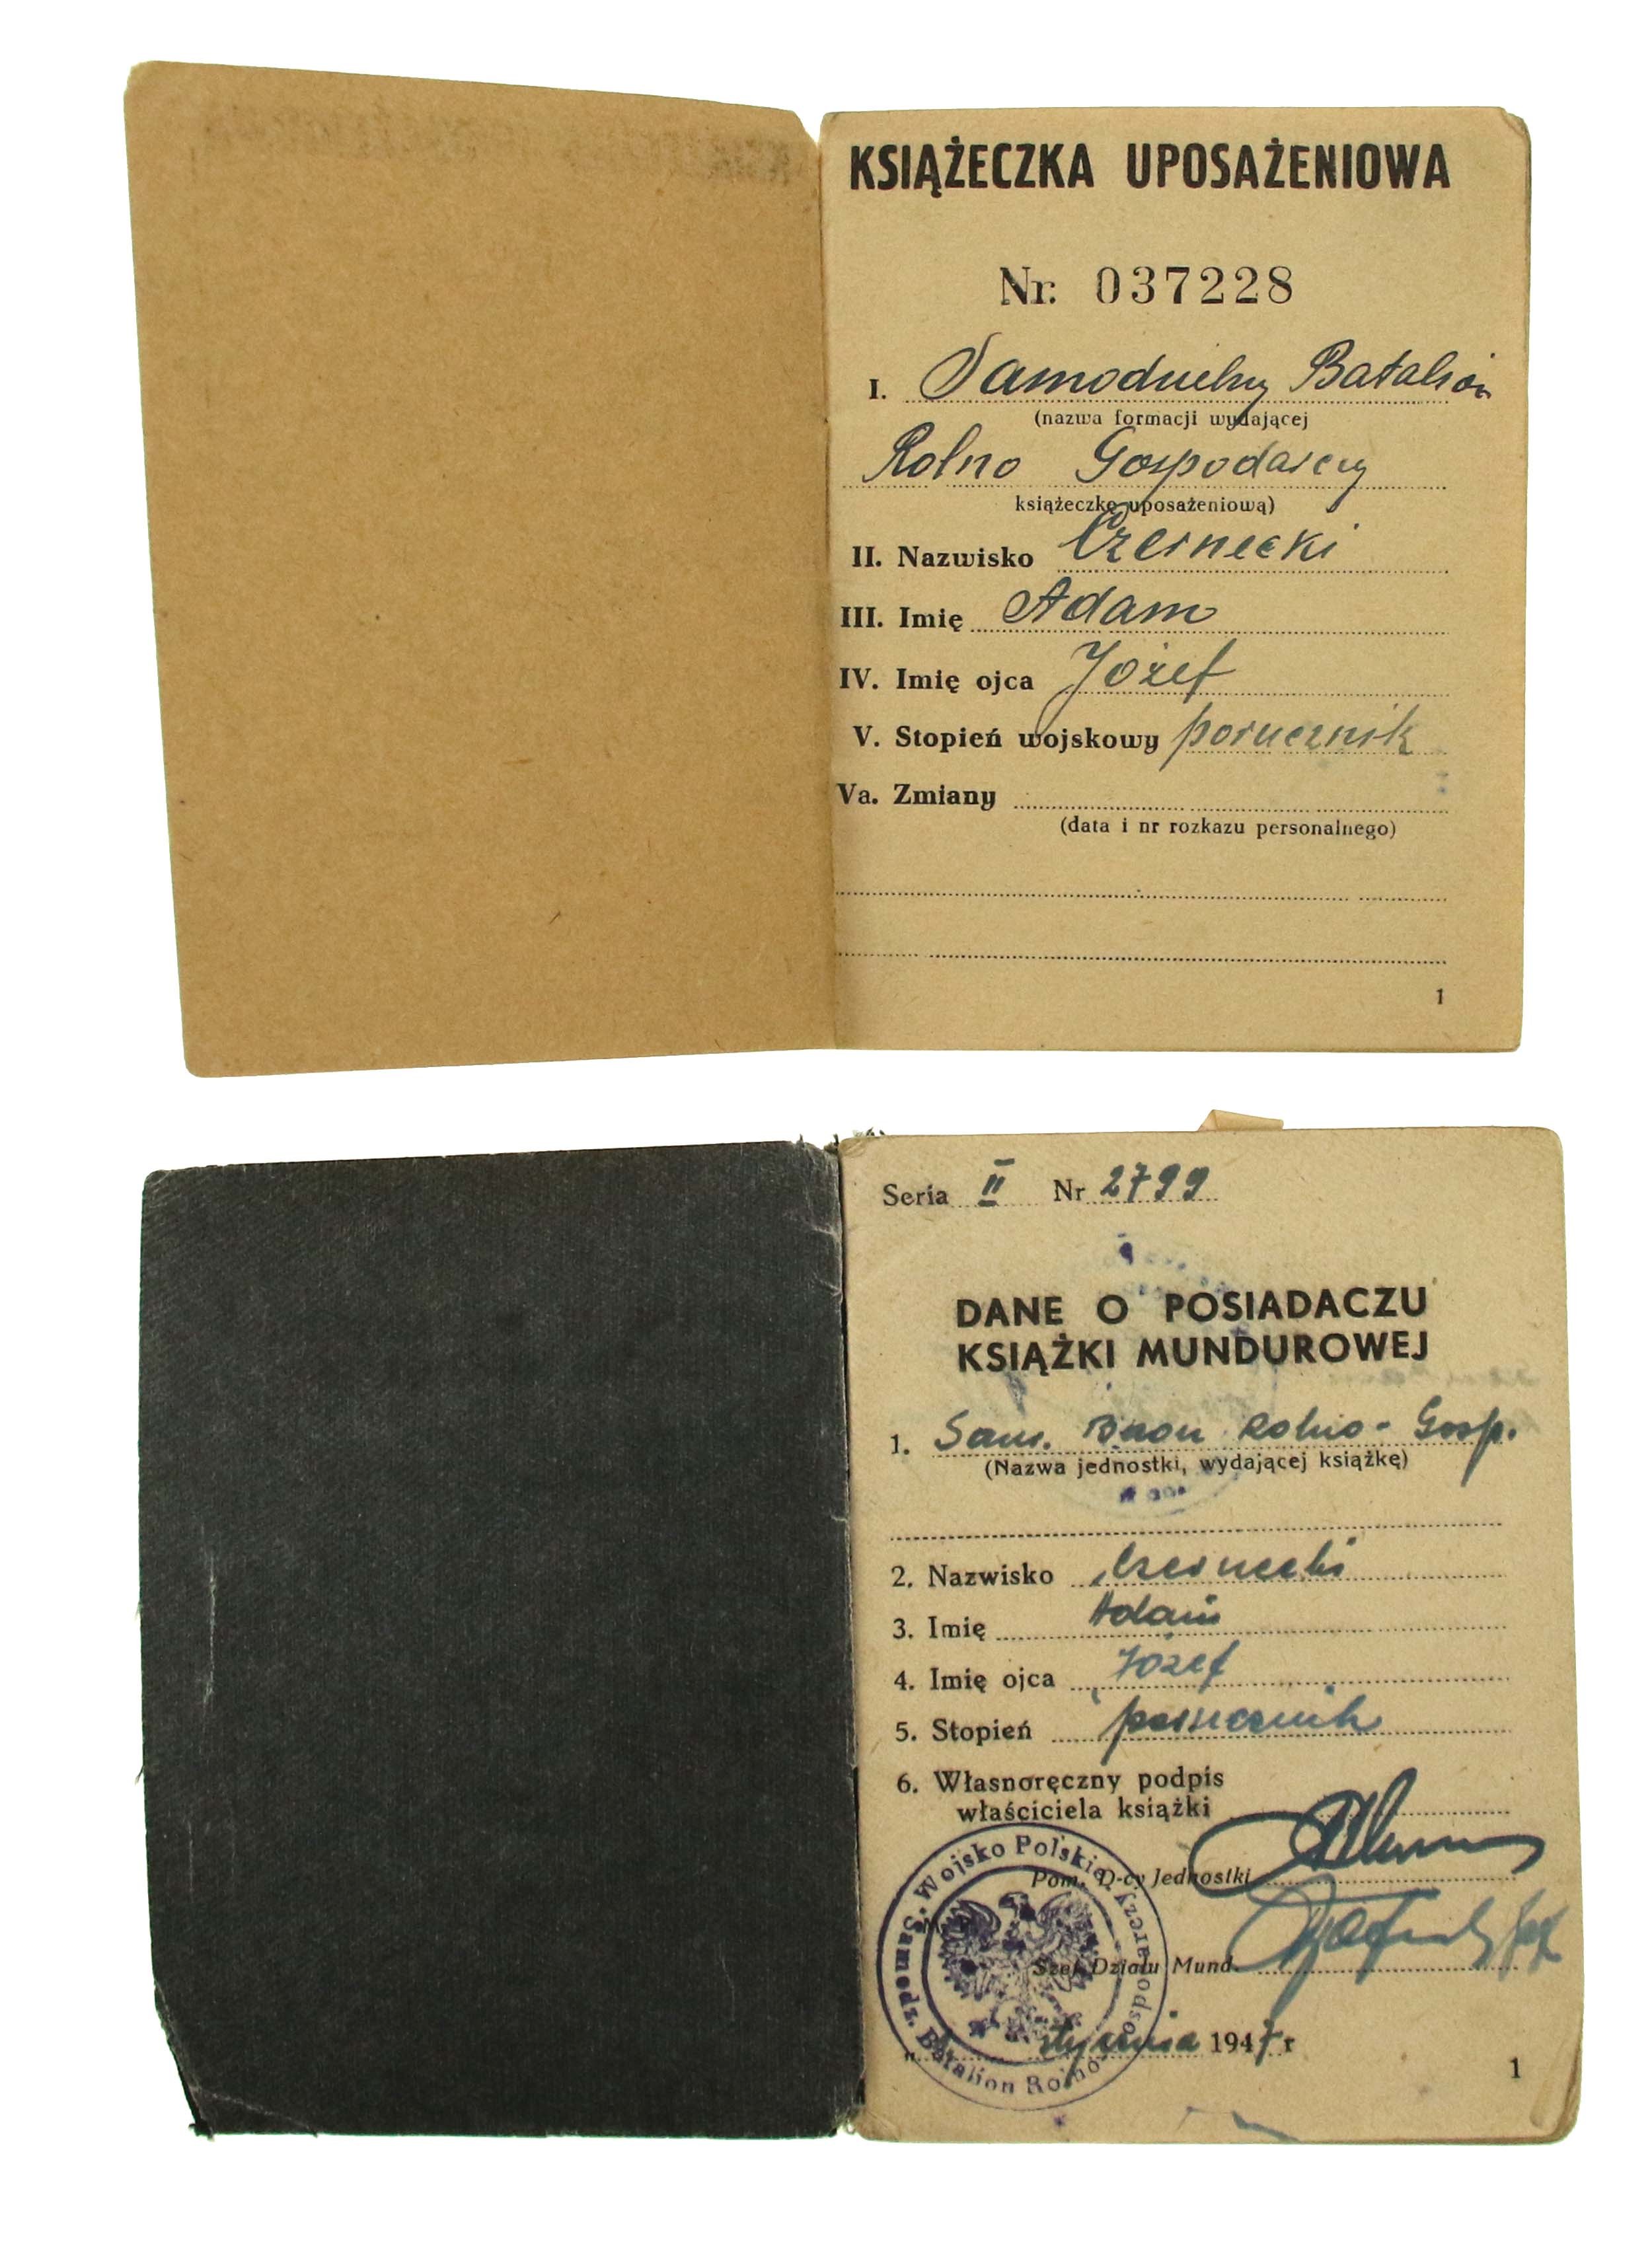 KSIĄŻECZKA UPOSAŻENIOWA
Nr. 037228
I. Samodzielny Batalion
(nazwa formacji wydającej
Rolno Gospodarczy
książeczkę uposażeniową)
II. Nazwisko Czernecki
III. Imię Adam
IV. Imię ojca Józef
V. Stopień wojskowy porucznik
Va. Zmiany
(data i nr rozkazu personalnego)
1
Seria II Nr 2799
DANE O POSIADACZU
KSIĄŻKI MUNDUROWEJ
1. Sam. Baon Rolno-Gosp.
(Nazwa jednostki, wydającej książkę)
2. Nazwisko Czernecki
3. Imię Adam
4. Imię ojca Józef
5. Stopień porucznik
6. Własnoręczny podpis
właściciela książki
Pom. D-cy Jednostki
Szef Działu Mund.
Wojsko Polskie
Samodz. Batalion Rolno-Gospodarczy
stycznia 1947 r
1